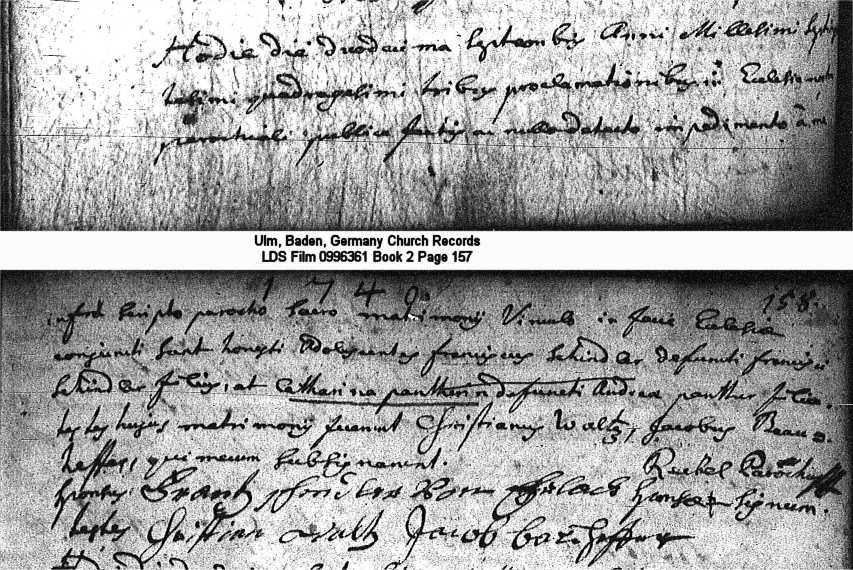 Hodie die duodecima septembris Anni Millesimi septin
tesimi quadragesimi tribus proclamationibus in Ecclesia nostra
parochiali publice factis ac nullo detecto impedimento à me
Ulm, Baden, Germany Church Records
LDS Film 0996361 Book 2 Page 157
1740 158.
infra scripto parocho sacro matrimonij Vinculo in facie Ecclesiae
conjuncti sunt honesti Adolescentes franciscus schindler defuncti francisci
schindler filius, et Catharina pantherin defuncti Andrea panther filia.
testes hujus matrimonij fuerunt Christianus Waltz, Jacobus Beau=
heffer, qui mecum subsignarunt.
Parochus
sponsus: Frantz signum.
testes Christian Waltz Jacob